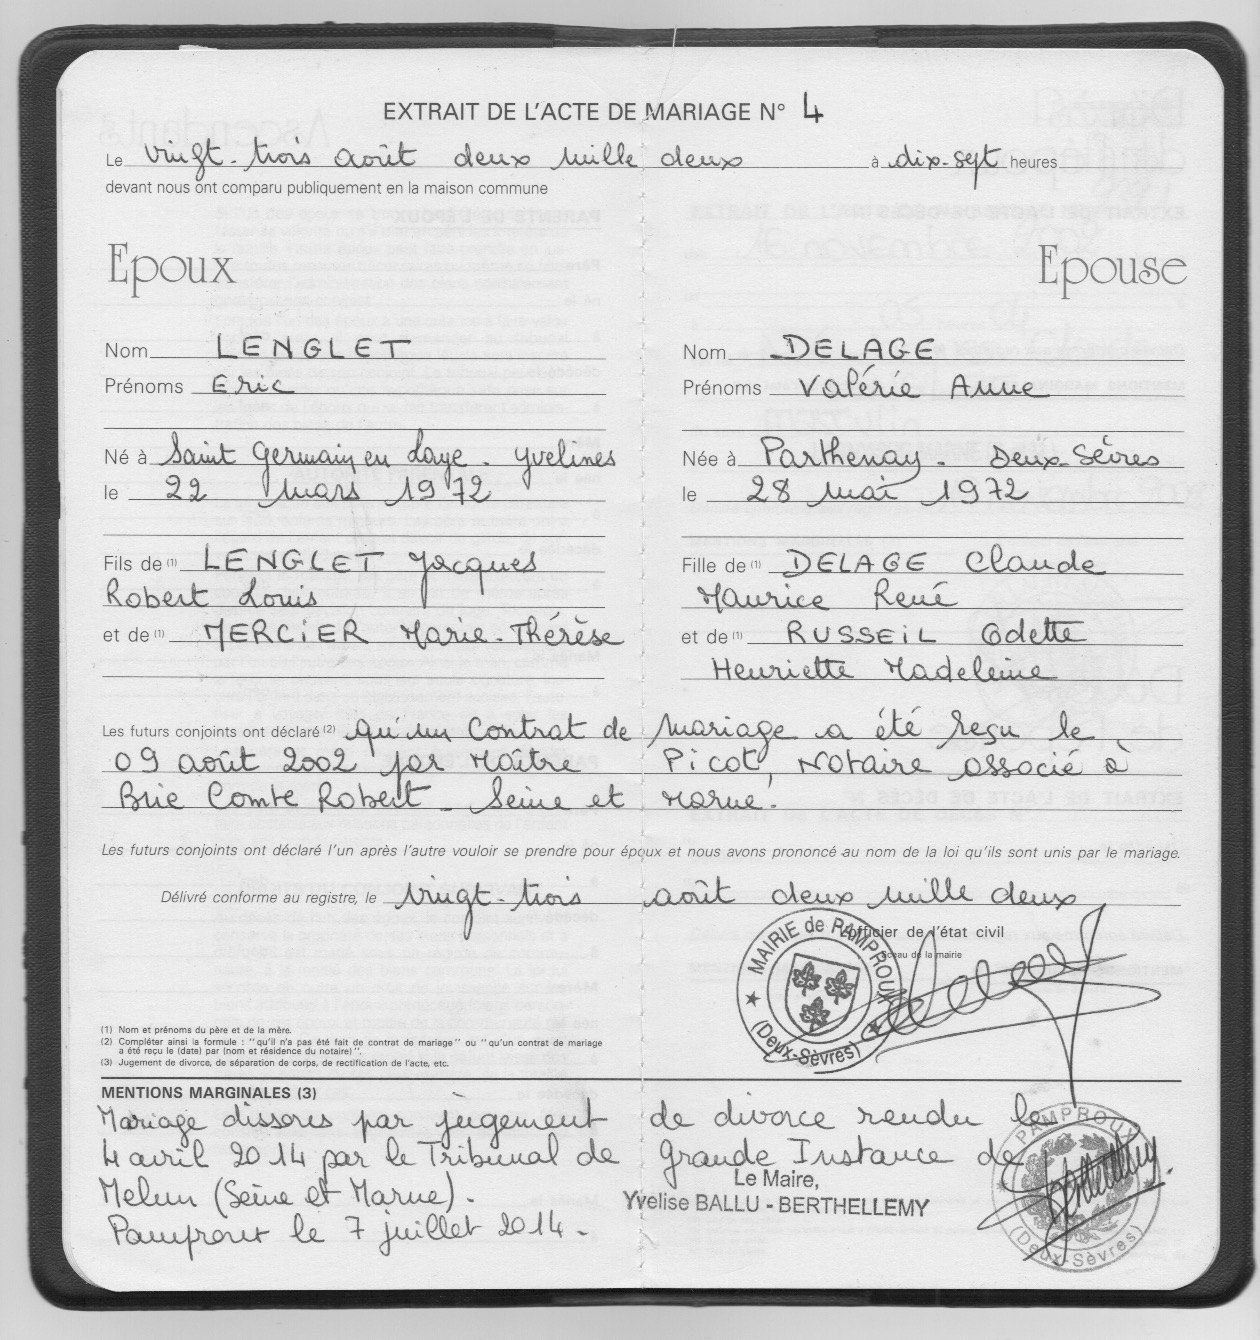 EXTRAIT DE L'ACTE DE MARIAGE N° 4
Le vingt-trois août deux mille deux à dix-sept heures
devant nous ont comparu publiquement en la maison commune
Epoux
Nom LENGLET
Prénoms Eric
Né à Saint Germain en Laye - Yvelines
le 22 mars 1972
Fils de (1) LENGLET Jacques
Robert Louis
et de (1) MERCIER Marie-Thérèse
Epouse
Nom DELAGE
Prénoms Valérie Anne
Née à Parthenay - Deux-Sèvres
le 28 mai 1972
Fille de (1) DELAGE Claude
Maurice René
et de (1) RUSSEIL Odette
Henriette Madeleine
Les futurs conjoints ont déclaré (2) qu'un Contrat de mariage a été reçu le
09 août 2002 par Maître Picot, Notaire associé à
Brie Comte Robert - Seine et Marne.
Les futurs conjoints ont déclaré l'un après l'autre vouloir se prendre pour époux et nous avons prononcé au nom de la loi qu'ils sont unis par le mariage.
Délivré conforme au registre, le vingt-trois août deux mille deux
L'officier de l'état civil
Sceau de la mairie
MAIRIE de PAMPROUX
(Deux-Sèvres)
(1) Nom et prénoms du père et de la mère.
(2) Compléter ainsi la formule : "qu'il n'a pas été fait de contrat de mariage" ou "qu'un contrat de mariage
a été reçu le (date) par (nom et résidence du notaire)".
(3) Jugement de divorce, de séparation de corps, de rectification de l'acte, etc.
MENTIONS MARGINALES (3)
Mariage dissous par jugement de divorce rendu le
4 avril 2014 par le Tribunal de Grande Instance de
Melun (Seine et Marne).
Pamproux le 7 juillet 2014.
Le Maire,
Yvelise BALLU - BERTHELLEMY
PAMPROUX
(Deux-Sèvres)